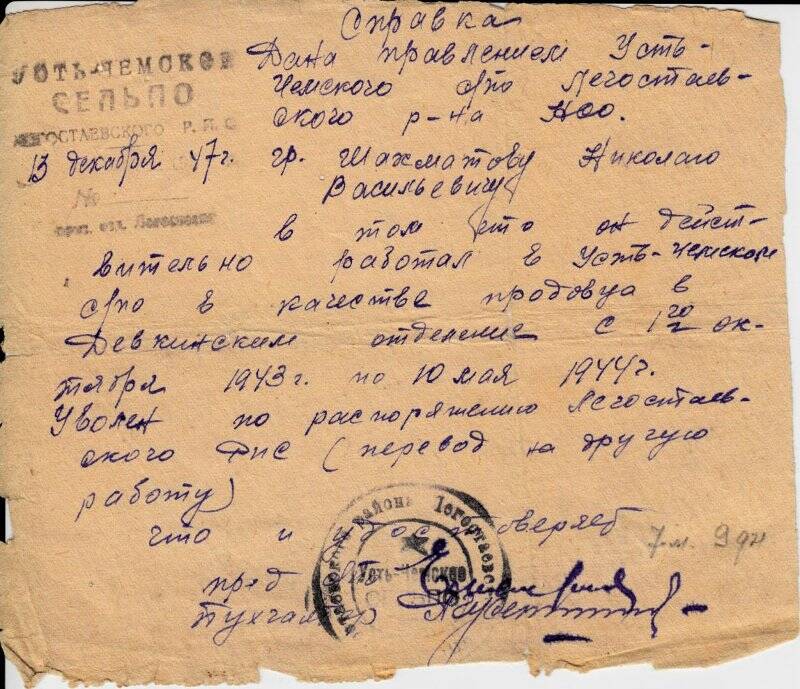 Справка
УСТЬ-ЧЕМСКОЕ
СЕЛЬПО
ЛЕГОСТАЕВСКОГО Р.П.С
13 декабря 47г.
№
Дана правлением Усть-
Чемского с/по Легостаев-
ского р-на НСО.
гр. Шахматову Николаю
Васильевичу
в том что он дейст-
вительно работал в Усть-Чемском
с/по в качестве продовца в
Девкинским отделение с 1го ок-
тября 1943г. по 10 мая 1944г.
Уволен по распоряжению Легостаев-
ского РПС (перевод на другую
работу)
что и удостоверяет
пред с/по
Бухгалтер
района Легостаевс
Усть-Чемское
7 м. 9 дн